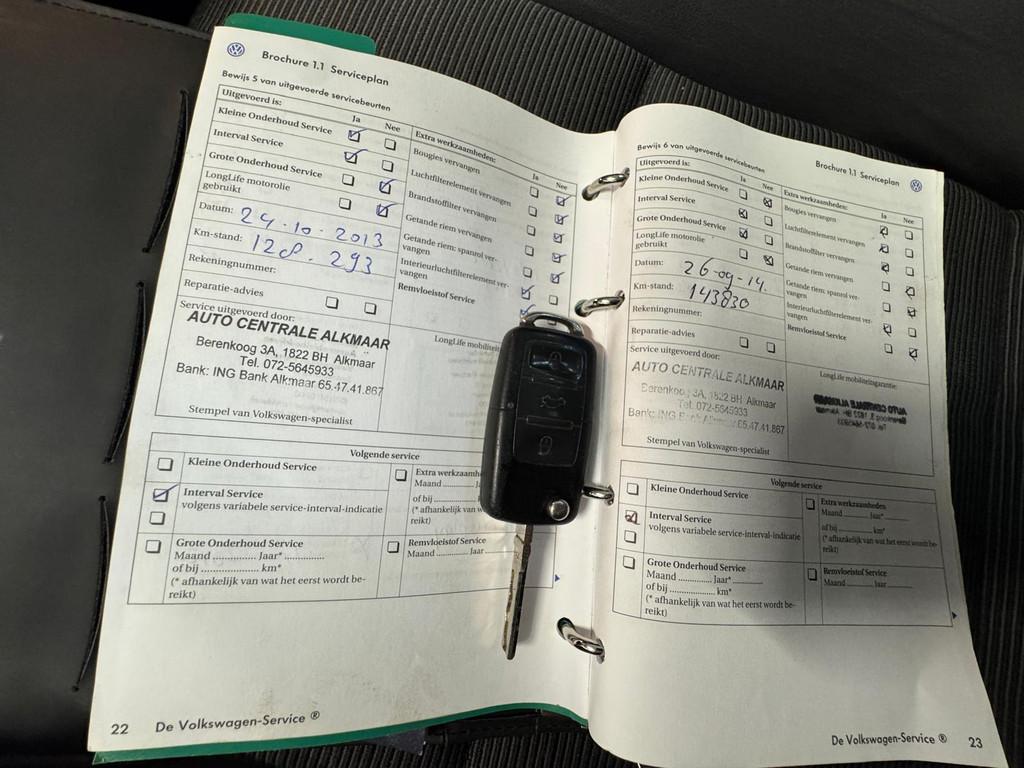 Brochure 1.1 Serviceplan
Bewijs 5 van uitgevoerde servicebeurten
Uitgevoerd is:
Ja
Nee
Kleine Onderhoud Service
Interval Service
Grote Onderhoud Service
LongLife motorolie
gebruikt
Datum: 24-10-2013
Km-stand: 128.293
Rekeningnummer:
Reparatie-advies
Service uitgevoerd door:
AUTO CENTRALE ALKMAAR
Berenkoog 3A, 1822 BH Alkmaar
Tel. 072-5645933
Bank: ING Bank Alkmaar 65.47.41.867
Stempel van Volkswagen-specialist
Extra werkzaamheden:
Ja
Nee
Bougies vervangen
Luchtfilterelement vervangen
Brandstoffilter vervangen
Getande riem vervangen
Getande riem; spanrol ver-
vangen
Interieurluchtfilterelement ver-
vangen
Remvloeistof Service
LongLife mobiliteits
Volgende service
Kleine Onderhoud Service
Interval Service
volgens variabele service-interval-indicatie
Grote Onderhoud Service
Maand .............. Jaar* ..............
of bij .................... km*
(* afhankelijk van wat het eerst wordt be-
reikt)
Extra werkzaamheden
Maand
of bij
(* afhankelijk
reikt)
Remvloeistof Service
Maand .............. Jaar
22 De Volkswagen-Service ®
Brochure 1.1 Serviceplan
Bewijs 6 van uitgevoerde servicebeurten
Uitgevoerd is:
Ja
Nee
Kleine Onderhoud Service
Interval Service
Grote Onderhoud Service
LongLife motorolie
gebruikt
Datum: 26-09-14.
Km-stand: 143830
Rekeningnummer:
Reparatie-advies
Service uitgevoerd door:
AUTO CENTRALE ALKMAAR
Berenkoog 3A, 1822 BH Alkmaar
Tel. 072-5645933
Bank: ING Bank Alkmaar 65.47.41.867
Stempel van Volkswagen-specialist
Extra werkzaamheden:
Ja
Nee
Bougies vervangen
Luchtfilterelement vervangen
Brandstoffilter vervangen
Getande riem vervangen
Getande riem; spanrol ver-
vangen
Interieurluchtfilterelement ver-
vangen
Remvloeistof Service
LongLife mobiliteitsgarantie:
Volgende service
Kleine Onderhoud Service
Interval Service
volgens variabele service-interval-indicatie
Grote Onderhoud Service
Maand .......... Jaar* ..........
of bij .................... km*
(* afhankelijk van wat het eerst wordt be-
reikt)
Extra werkzaamheden
Maand .......... Jaar* ..........
of bij .................... km*
(* afhankelijk van wat het eerst wordt be-
reikt)
Remvloeistof Service
Maand .......... Jaar ..........
De Volkswagen-Service ® 23